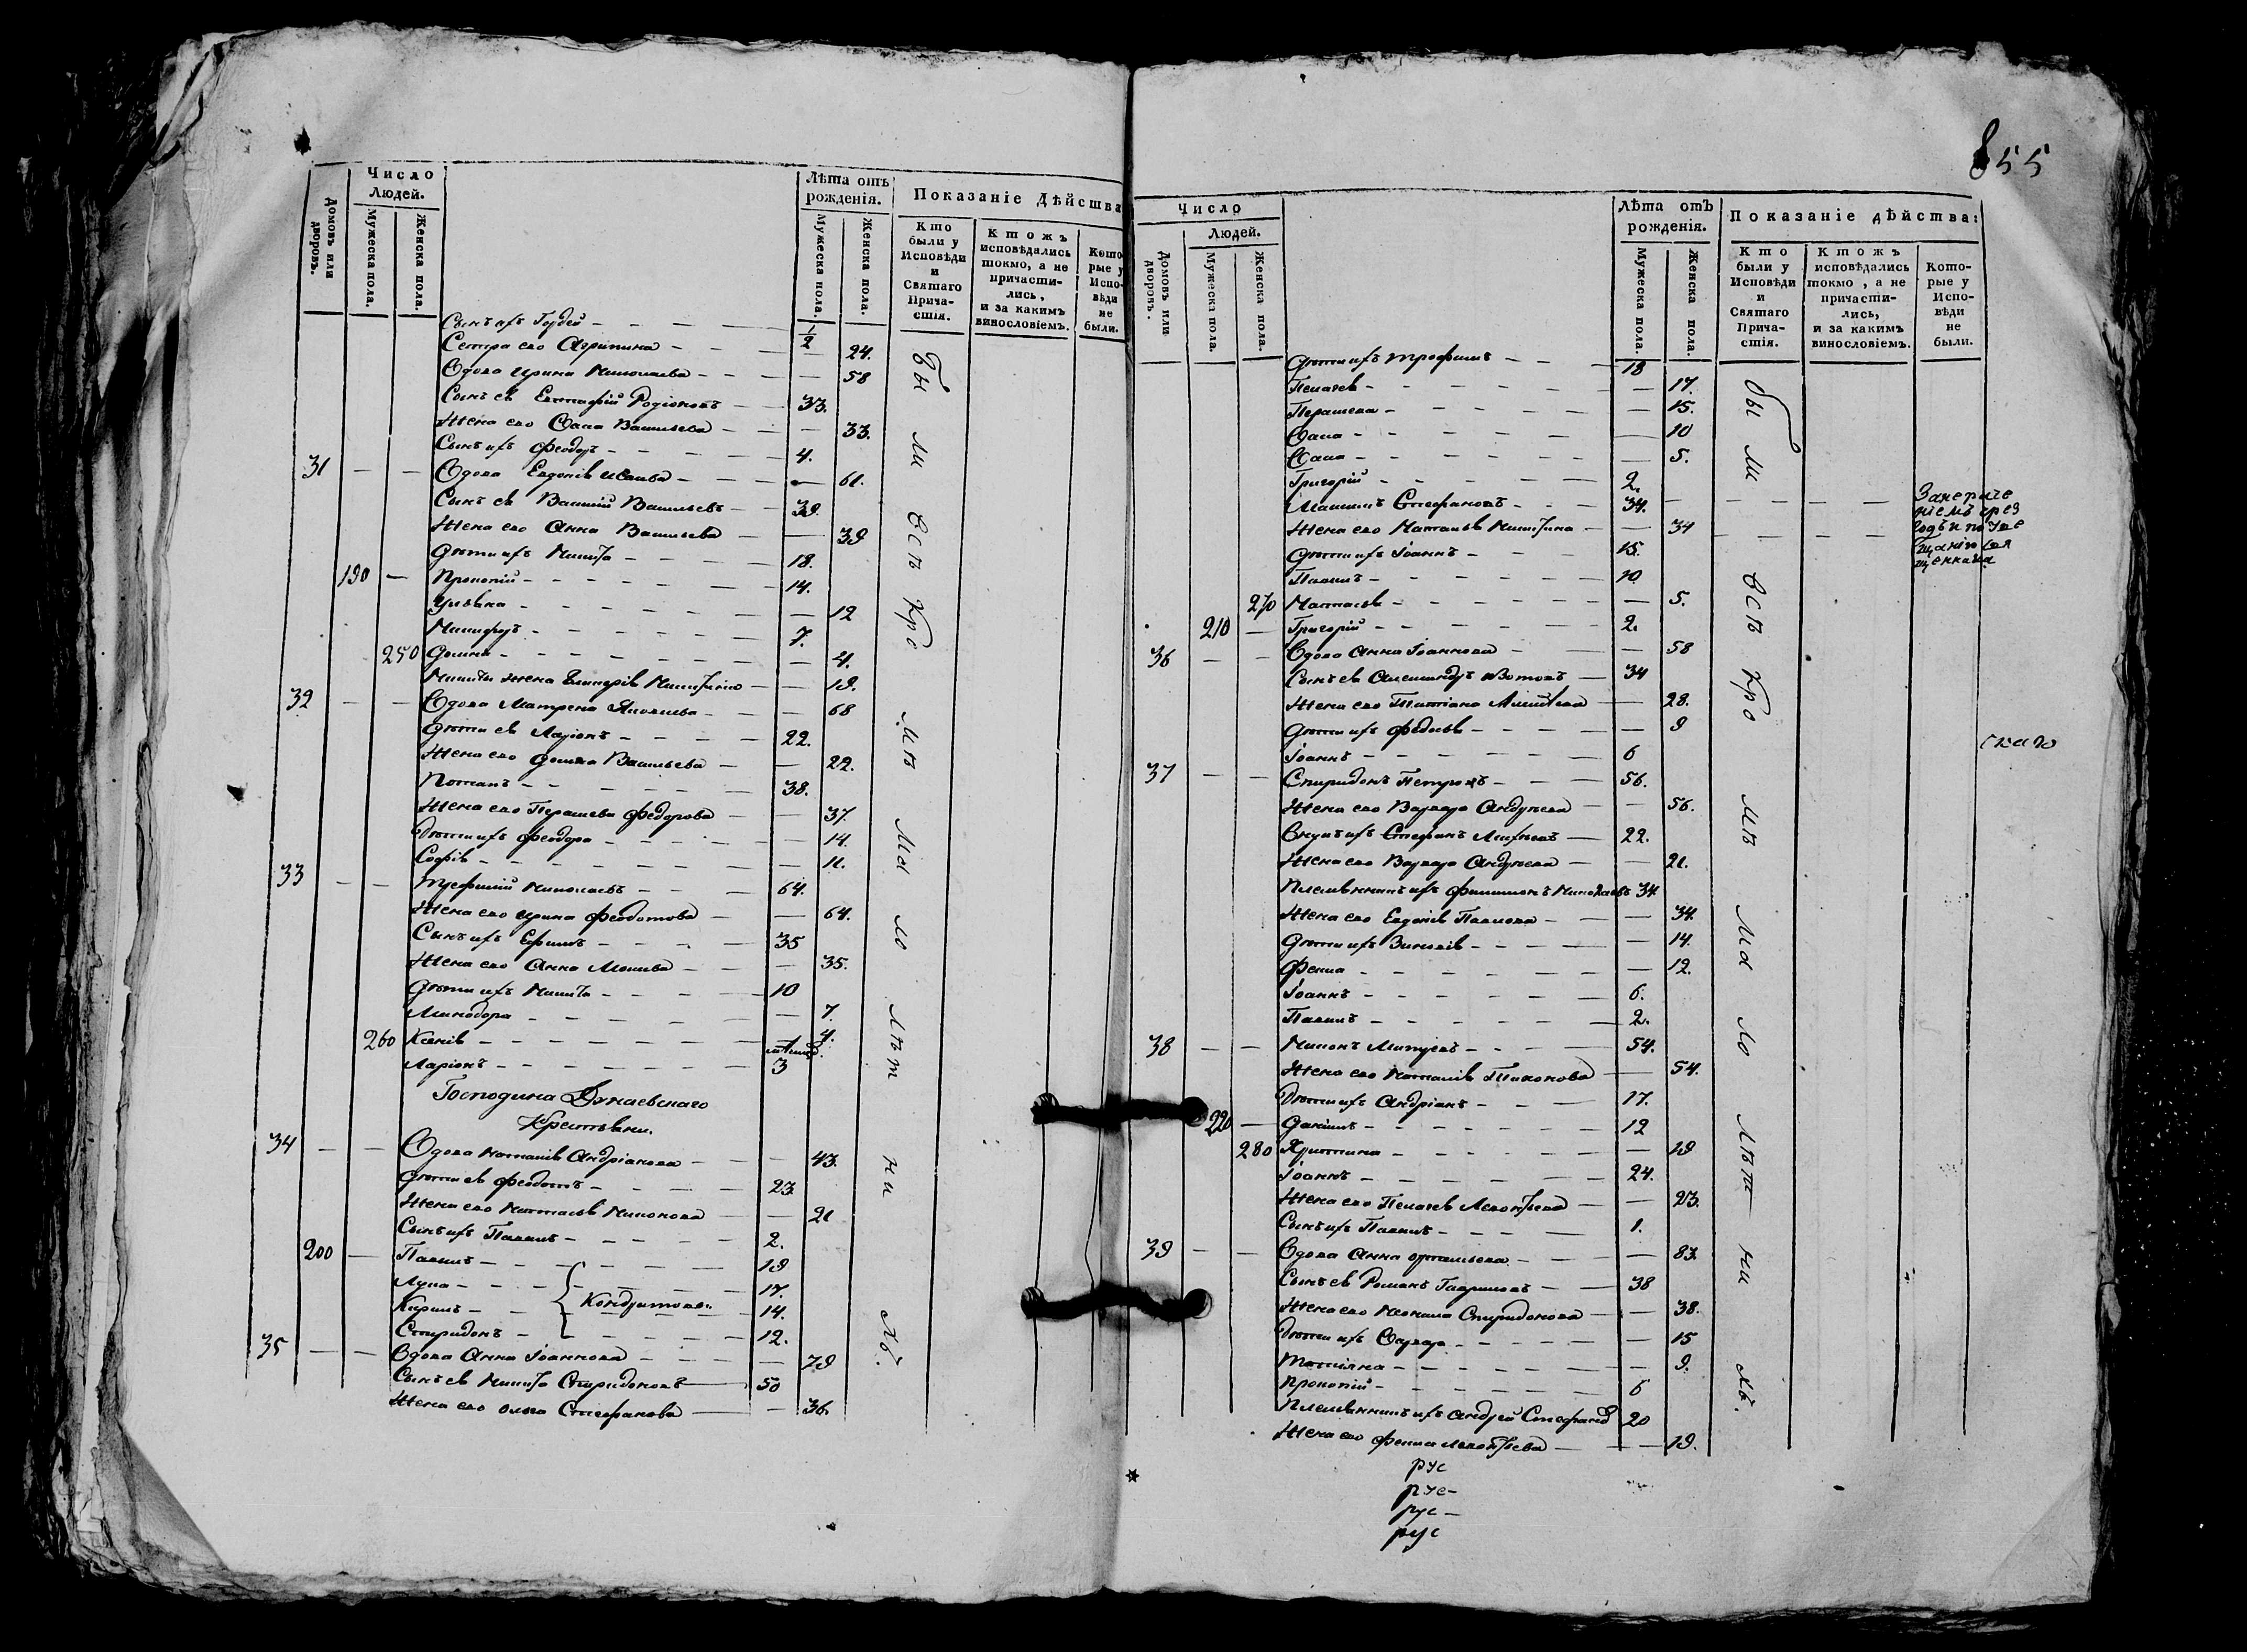 855
Число
Людей.
Домовъ или дворовъ.
Мужеска пола.
Женска пола.
Лѣта отъ
рожденія.
Мужеска пола.
Женска пола.
Показаніе Дѣйства
Кто
были у
Исповѣди
и
Святаго
Прича-
стія.
Ктожъ
исповѣдались
токмо, а не
причасти-
лись,
и за какимъ
винословіемъ.
Кото
рые у
Испо-
вѣди
не
были.
Сынъ ихъ Гордей 1/2
Сестра его Агрипина 24.
Вдова Ирина Николаева 58
Сынъ ея Евстафій Родіоновъ 33.
Жена его Васа Васильева 33.
Сынъ ихъ Феодоръ 4.
31 Вдова Евдокія 61.
Сынъ ея Василій Васильевъ 39.
Жена его Анна Васильева 39
Дѣти ихъ Никита 18.
190 Прокопій 14.
Ульяна 12
Никифоръ 7.
250 Домна 4.
Никиты жена Гликерія Никитина 19.
32 Вдова Матрена Яковлева 68
Дѣти ея Ларіонъ 22.
Жена его Домна Васильева 22.
Потапъ 38.
Жена его Параскева Федорова 37.
Дѣти ихъ Феодора 14.
Софія 11.
33 Трофимій Николаевъ 64.
Жена его Ирина Феодотова 64.
Сынъ ихъ Ефимъ 35
Жена его Анна 35.
Дѣти ихъ Никита 10
Минодора 7.
260 Ксенія 4.
Ларіонъ 3
Господина Дунаевскаго
Крестьяни.
34 Вдова Наталія Андріанова 43.
Дѣти ея Феодотъ 23.
Жена его Наталья 21
Сынъ ихъ Павелъ 2.
200 Павелъ 19
Лука 17.
Кирилъ Кондратовы 14.
Спиридонъ 12.
35 Вдова Анна Іоаннова 79
Сынъ ея Никита Спиридоновъ 50
Жена его Ольга Стефанова 36.
Бы ли Всѣ кро мѣ ма ло лѣт ни хъ.
Число
Людей.
Домовъ или дворовъ.
Мужеска пола.
Женска пола.
Лѣта отъ
рожденія.
Мужеска пола.
Женска пола.
Показаніе дѣйства:
Кто
были у
Исповѣди
и
Святаго
Прича-
стія.
Ктожъ
исповѣдались
токмо, а не
причасти-
лись,
и за какимъ
винословіемъ.
Кото-
рые у
Испо-
вѣди
не
были.
Дѣти ихъ Трофимъ 18
Пелагея 17.
Параскева 15.
Васа 10
Васа 5.
Григорій 2.
Стефановъ 34.
Жена его Наталья Никитина 34
Дѣти ихъ Іоаннъ 15.
Павелъ 10
270 Наталья 5.
210 Григорій 2.
36 Вдова Анна Іоаннова 58
Сынъ ея Александръ 34
Жена его Татіана 28.
Дѣти ихъ 9
Іоаннъ 6
37 Спиридонъ Петровъ 56.
Жена его Варвара Андреева 56.
Внукъ ихъ Стефанъ 22.
Жена его Варвара Андреева 21.
Племянникъ ихъ Филимонъ Николаевъ 34.
Жена его Евдокія Павлова 34.
Дѣти ихъ Зиновія 14.
Фекла 12.
Іоаннъ 6.
Павелъ 2.
38 54.
Жена его Наталія 54.
Дѣти ихъ Андріанъ 17.
220 Даніилъ 12
280 Христина 19
Іоаннъ 24.
Жена его Пелагея Леонтьева 23.
Сынъ ихъ Павелъ 1.
39 Вдова Анна 83.
Сынъ ея Романъ Гавриловъ 38
Жена его Неонила Спиридонова 38.
Дѣти ихъ Варвара 15
Татіяна 9.
Прокопій 6
Племянникъ ихъ Андрей Стефановъ 20
Жена его Фекла Леонтьева 19.
бы ли Всѣ кро мѣ ма ло лѣт ни хъ.
рус
рус-
рус-
рус